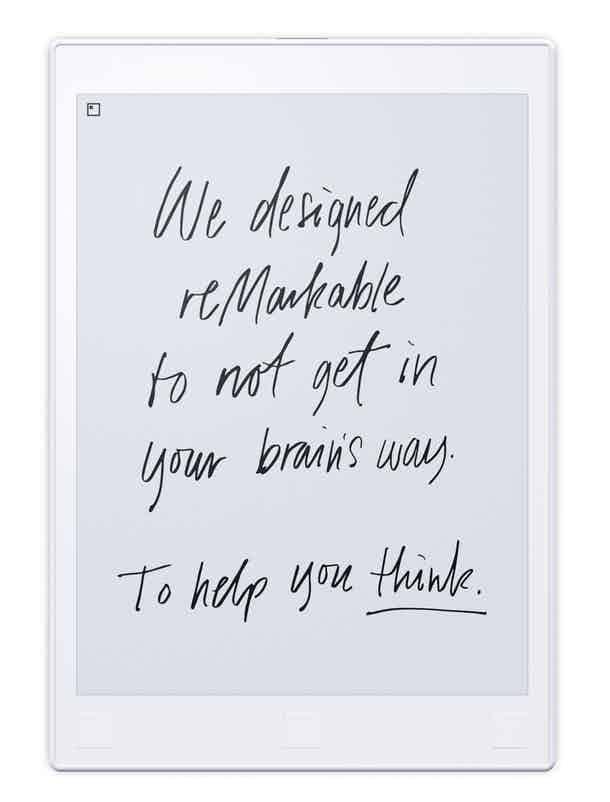 We designed
reMarkable
to not get in
your brain's way.
To help you think.